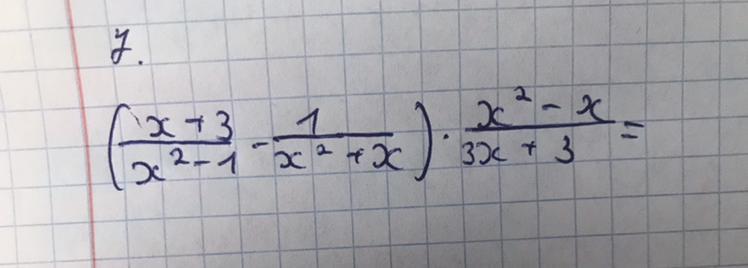 7.
(x + 3 / x² - 1 - 1 / x² + x) · x² - x / 3x + 3 =